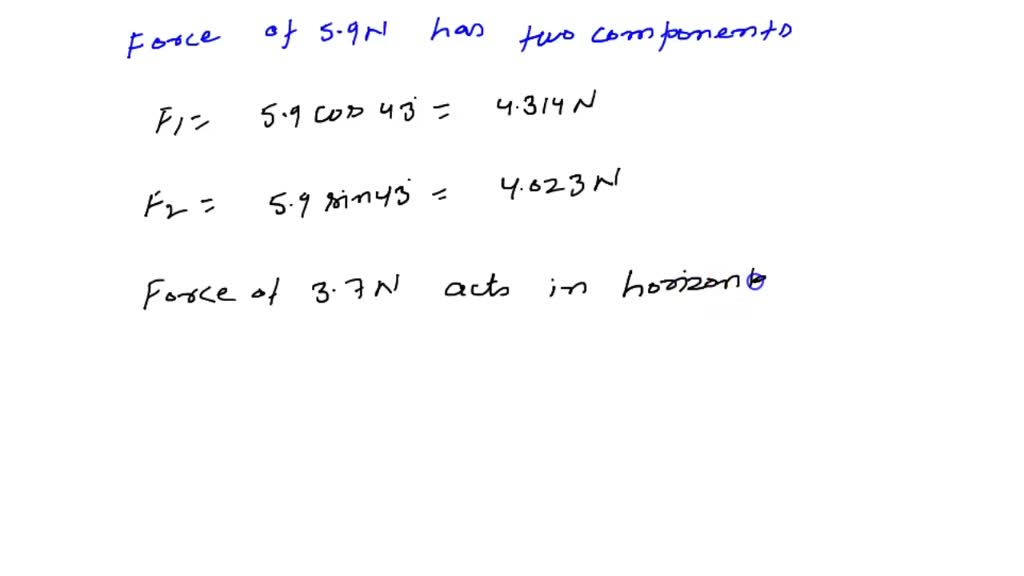 Force of 5.9N has two components
F1= 5.9 cos 43° = 4.314N
F2 = 5.9 sin43° = 4.023N
Force of 3.7N acts in horizont